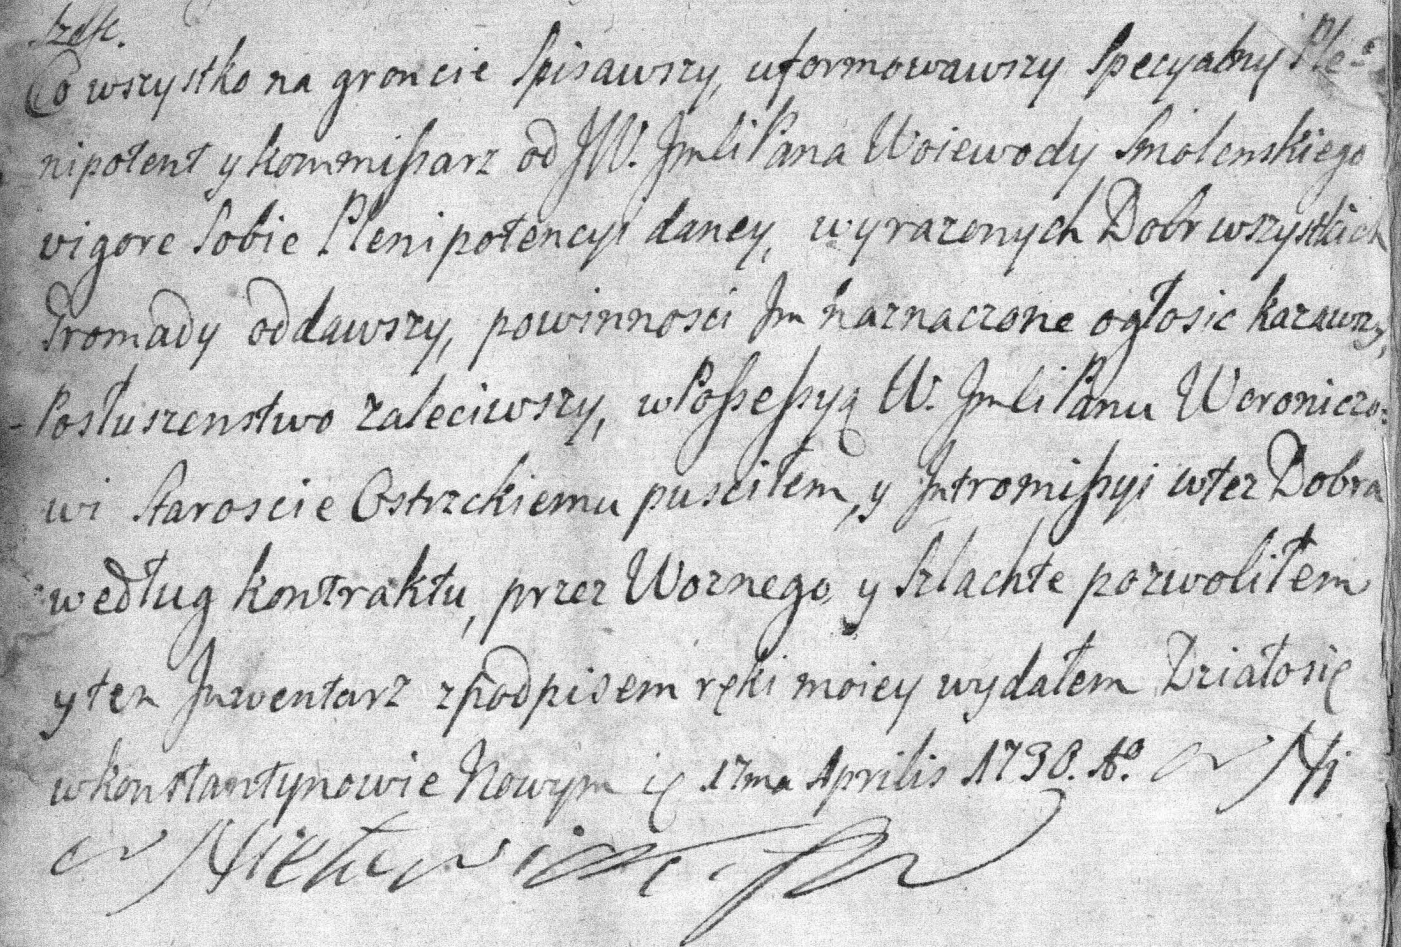 szesc.
Co wszystko na groncie spisawszy, uformowawszy specyalny Ple=
nipotent y kommissarz od JW. Jmści Pana Woiewody Smolenskiego
vigore sobie Plenipotencyi daney, wyrazonych Dobr wszystkich
Gromady oddawszy, powinnosci Jm naznaczone ogłosic kazawszy,
Posłuszenstwo zaleciwszy, w Possessyą W. Jmści Panu Woroniczo:
wi Staroscie Ostrzckiemu pusciłem, y Jntromissyi wtez Dobra
według kontraktu, przez Woznego y Szlachte pozwoliłem
y ten Jnwentarz z podpisem ręki moiey wydałem Działosię
w Konstantynowie Nowym 17ma Aprilis 1730. Ao.